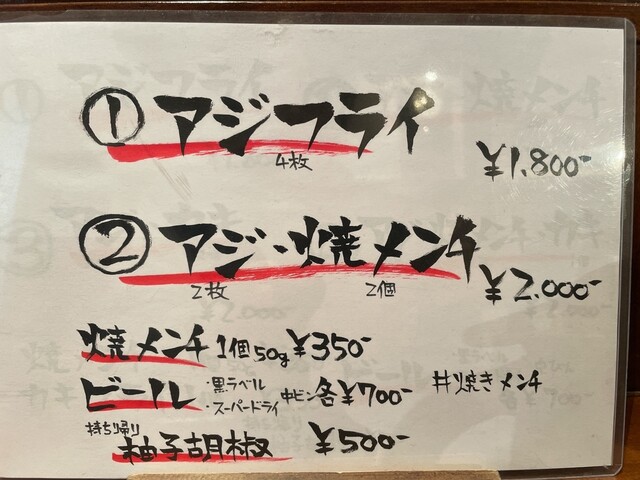 ① アジフライ
4枚
¥1.800-
② アジ・焼メンチ
2枚 2個
¥2.000-
焼メンチ 1個50g ¥350-
ビール ・黒ラベル ・スーパードライ 中ビン各¥700-
#焼きメンチ
持ち帰り
柚子胡椒 ¥500-